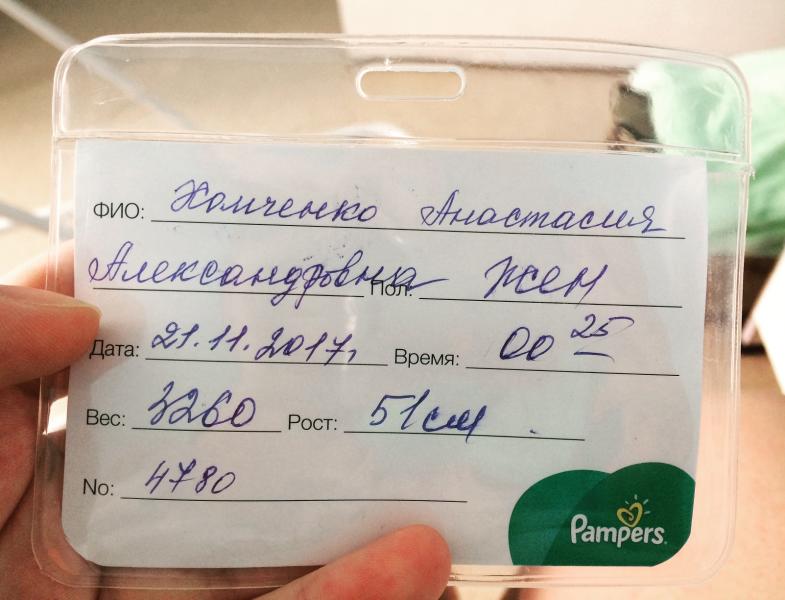 ФИО: Хомченко Анастасия
Александровна Пол: жен
Дата: 21.11.2017г. Время: 00 25
Вес: 3260 Рост: 51см
No: 4780
Pampers